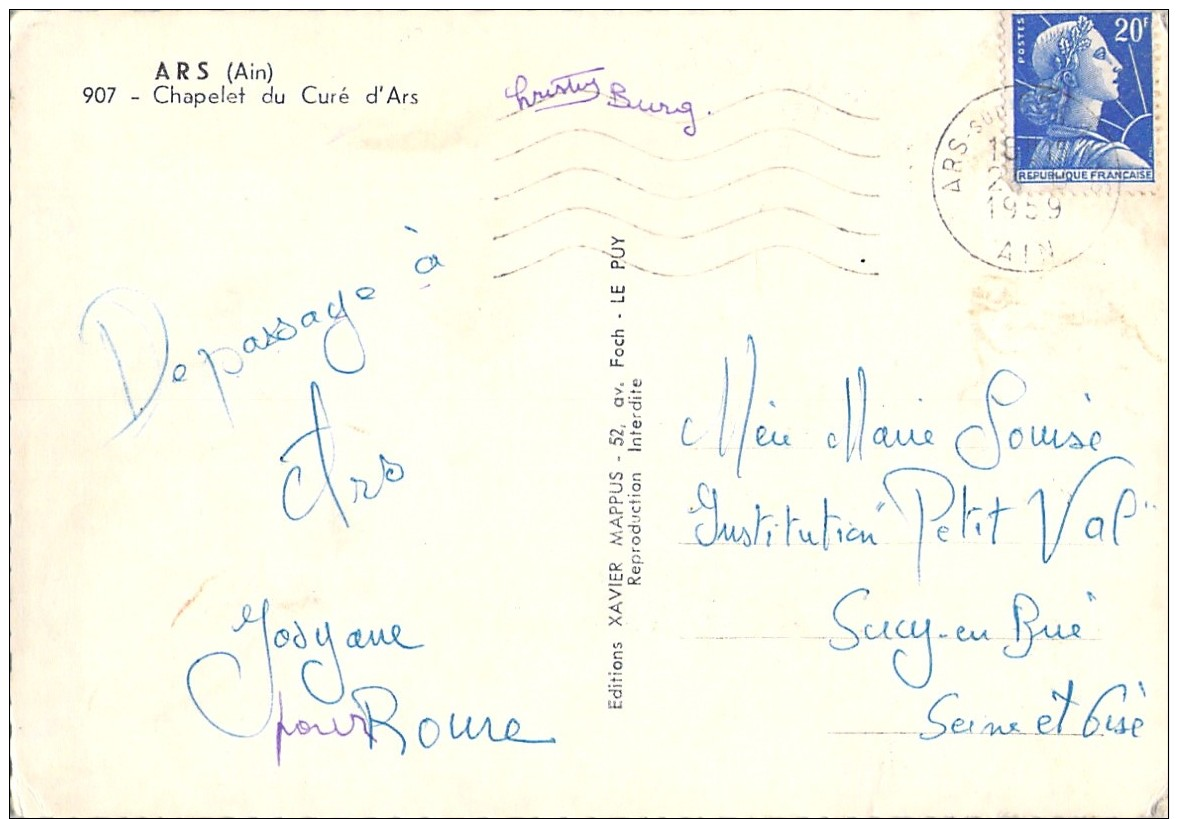 ARS (Ain)
907 - Chapelet du Curé d'Ars
Burg.
POSTES
20F
REPUBLIQUE FRANÇAISE
ARS-SUR
1959
AIN
De passage à
Ars
Josyane
pour Roure
Editions XAVIER MAPPUS - 52, av. Foch - LE PUY
Reproduction Interdite
Mère Marie Louise
Institution "Petit Val"
Sucy-en Brie
Seine et Oise